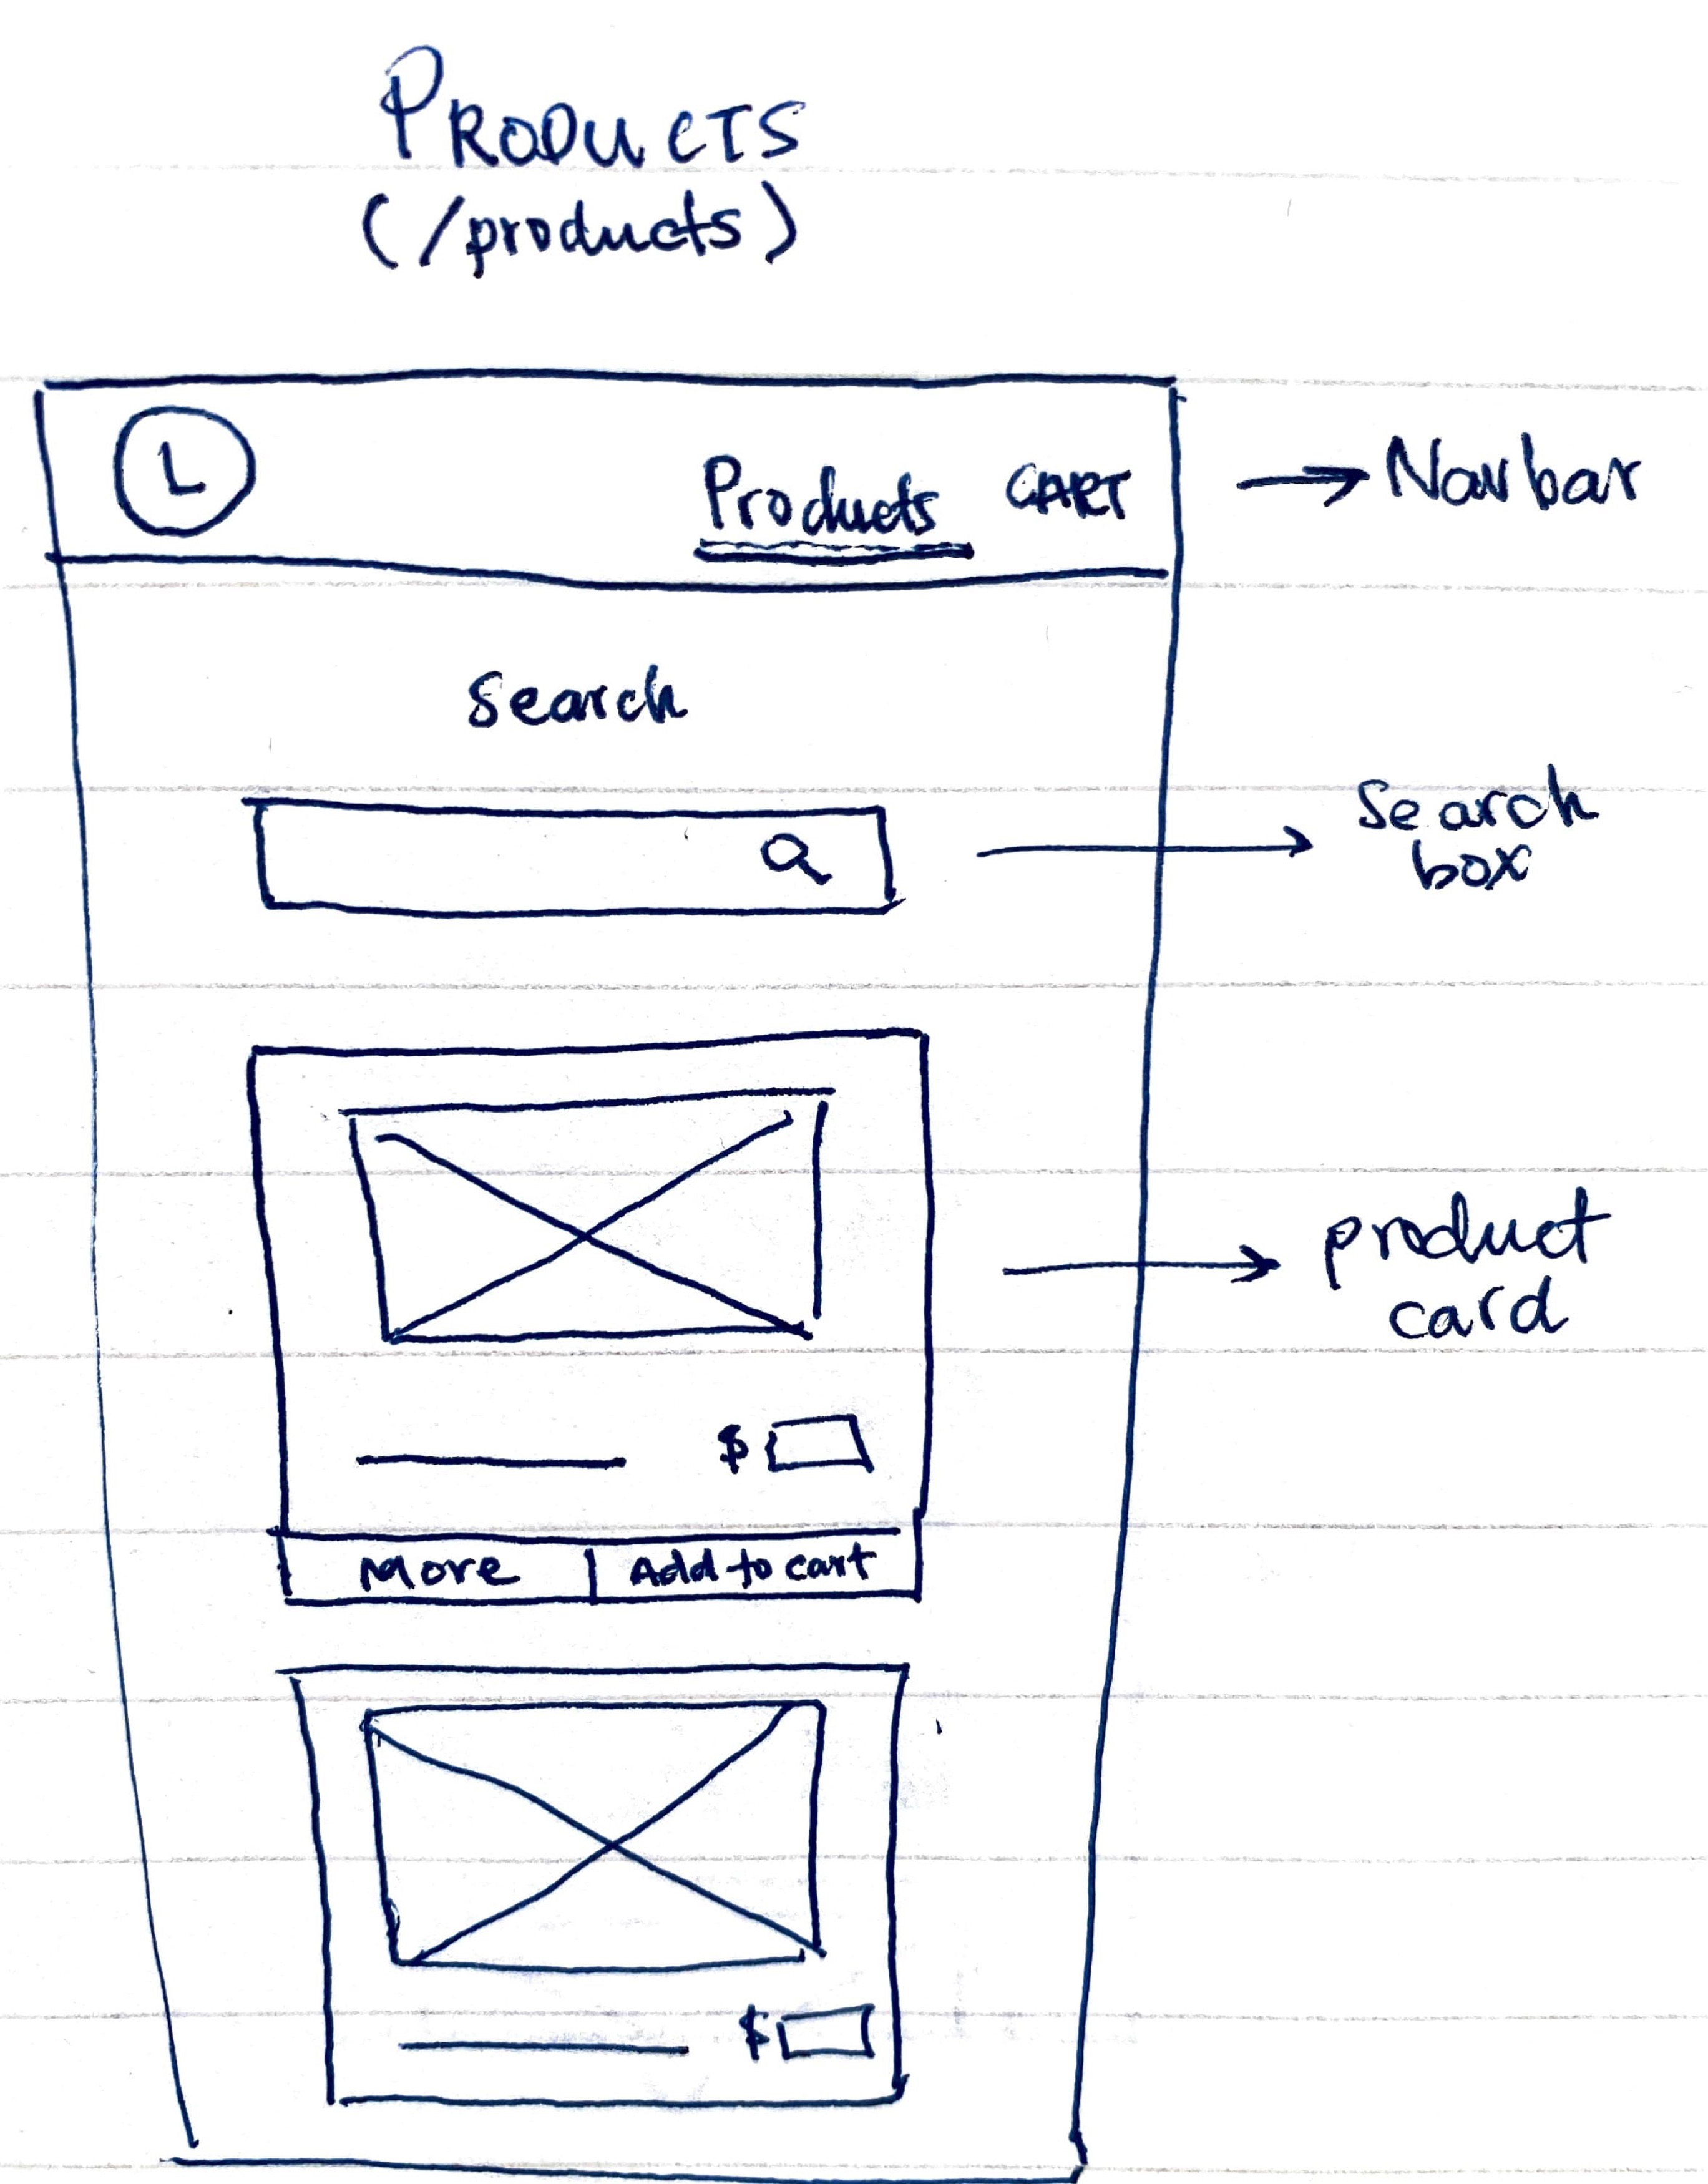 PRODUCTS
(/products)
L
Products CART
→ Navbar
Search
Search
box
product
card
$
More | Add to cart
$